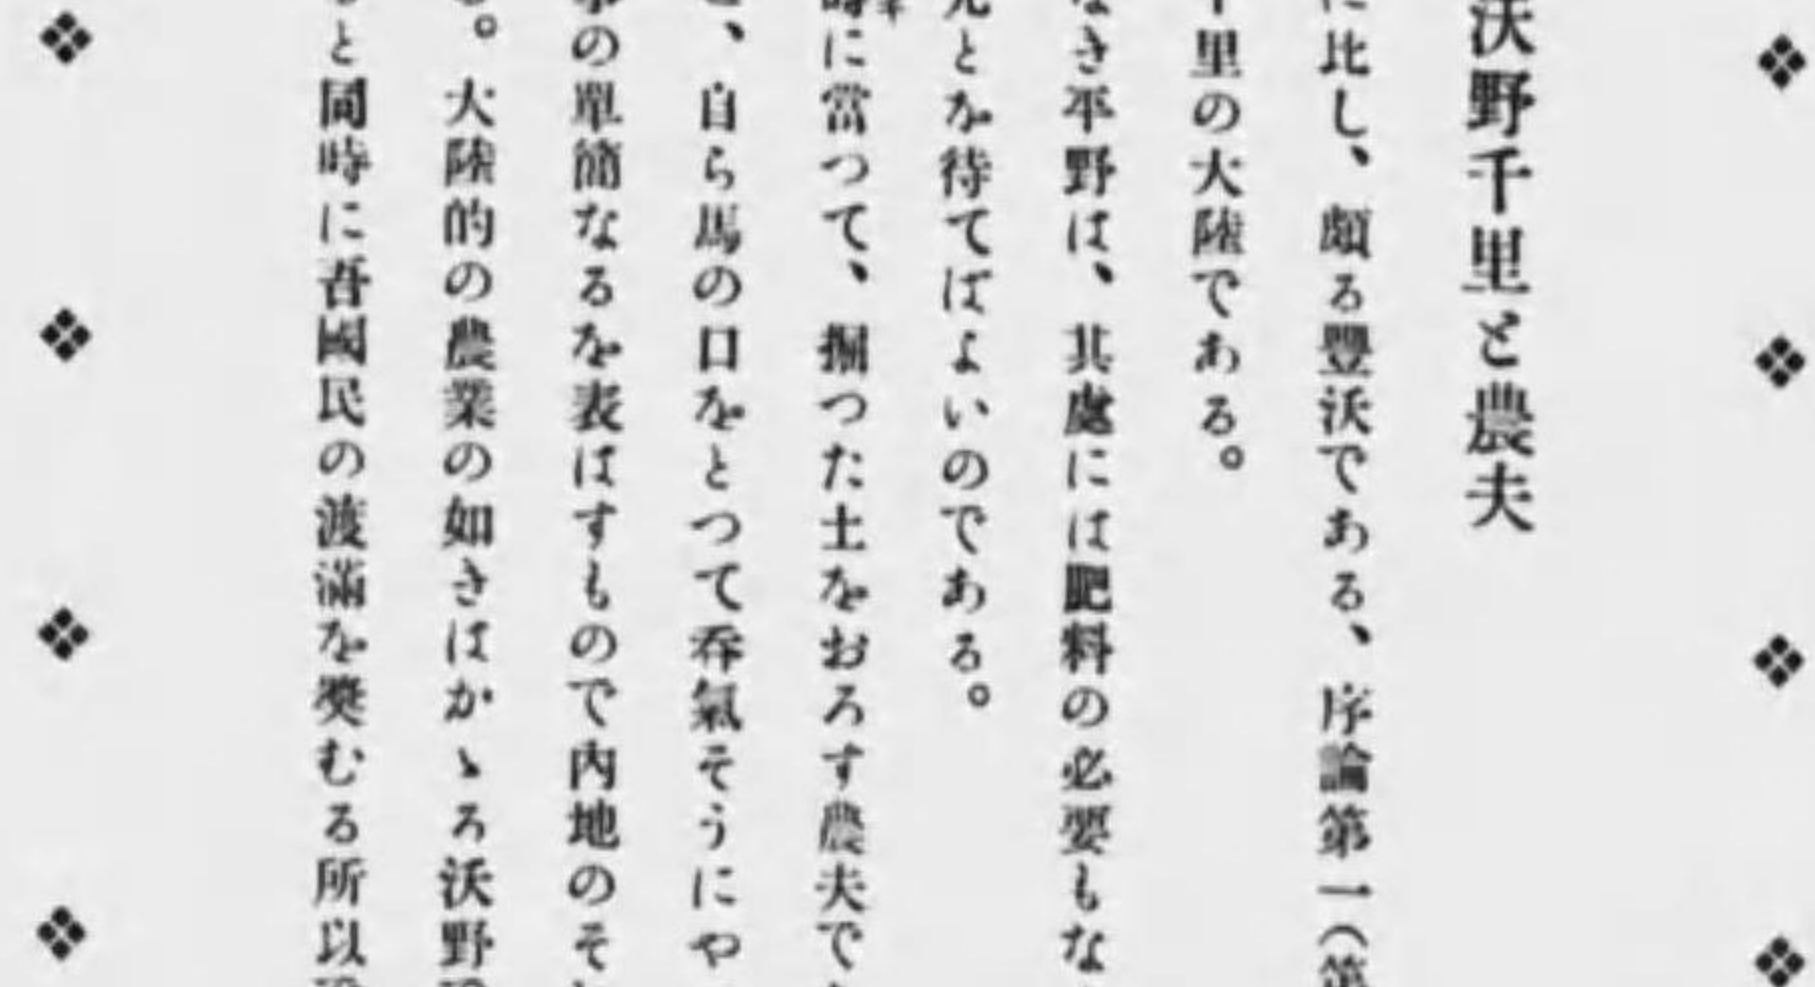 沃野千里と農夫
に比し、頗る豐沃である、序論第一(第
千里の大陸である。
なき平野は、其處には肥料の必要もな
とを待てばよいのである。
時に當つて、掘つた土をおろす農夫で
、自ら馬の口をとつて呑氣そうにや
の單簡なるを表はすもので內地のそ
。大陸的の農業の如きはかゝる沃野
と同時に吾國民の渡滿を奬むる所以